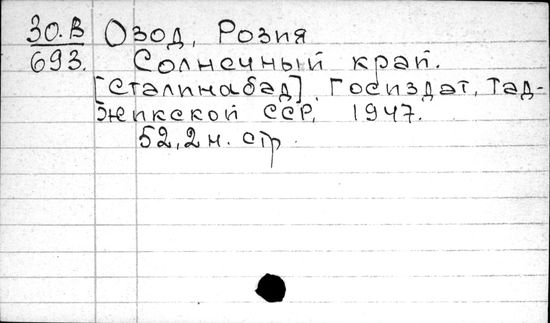 30.В Озод, Розия
693. Солнечный край.
[Сталинабад], Госиздат, Тад-
жикской ССР, 1947.
52,2 н. стр.